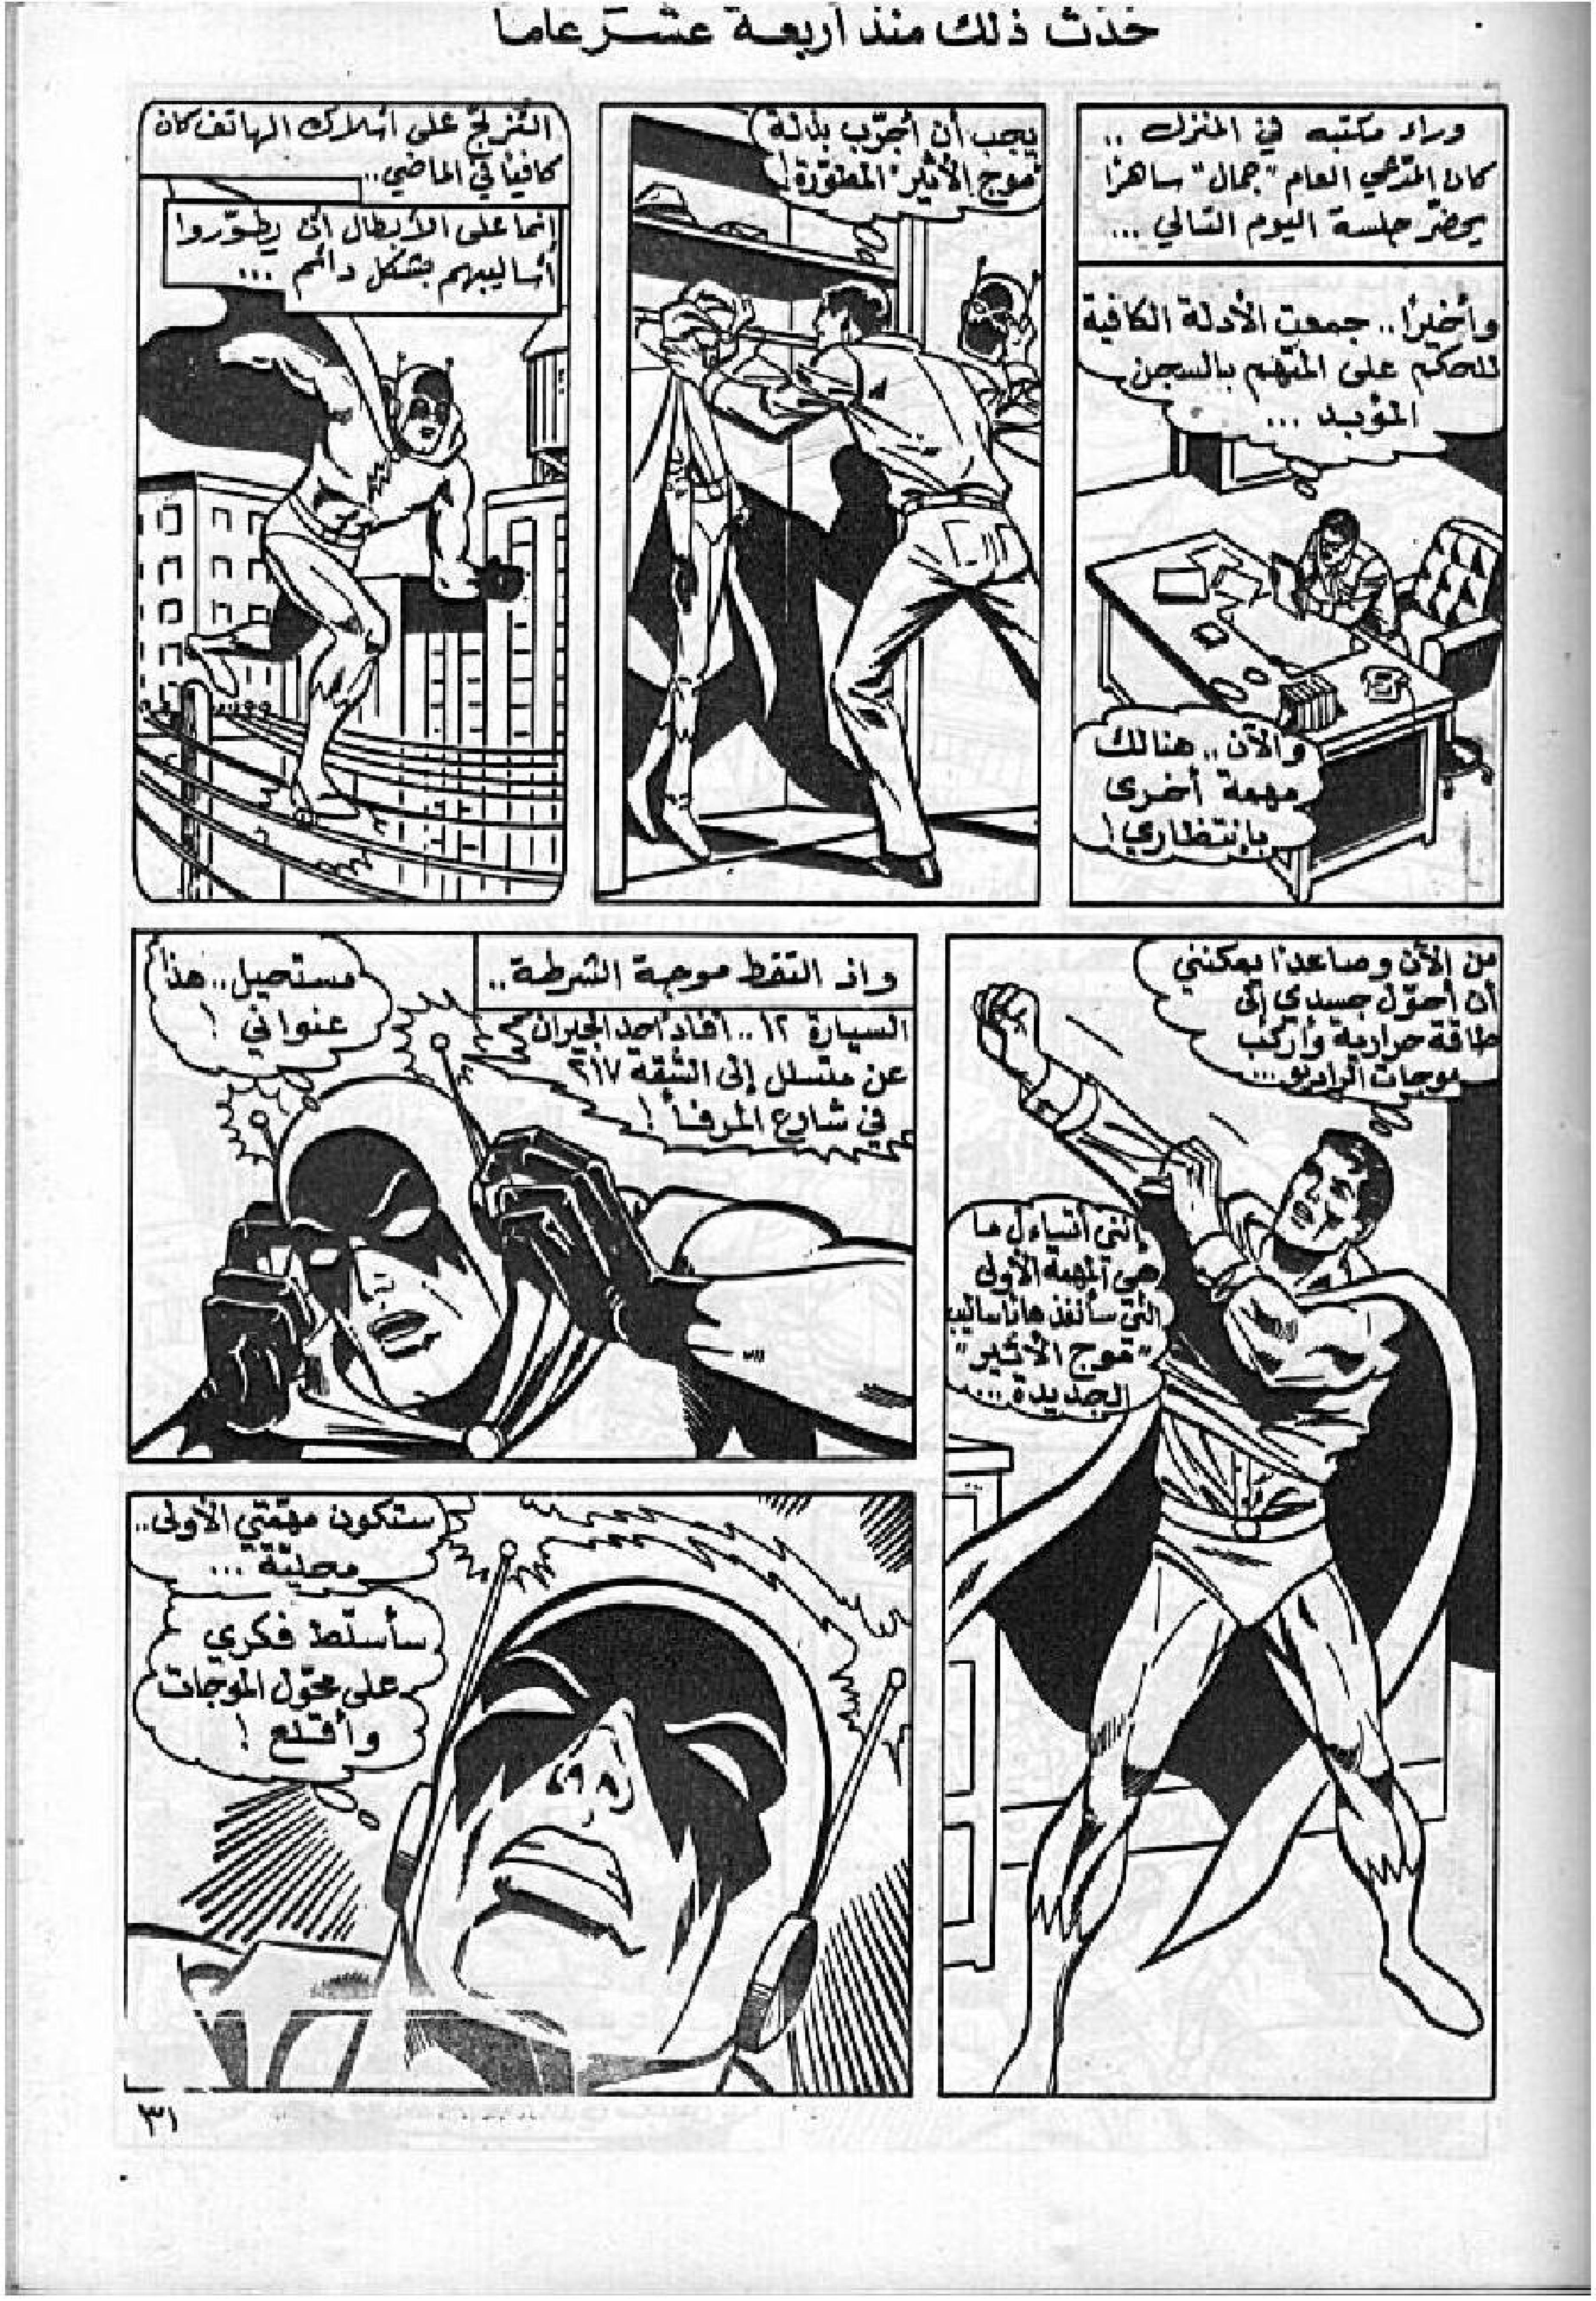 حَدَث ذلك منذ أربعة عشر عاما
وراء مكتبه في المنزل ..
كان المدّعي العام "جمال" ساهرًا
يحضّر جلسة اليوم التالي ...
وأخيرًا.. جمعت الأدلة الكافية
للحكم على المتّهم بالسجن
المؤبد ...
والآن.. هنالك
مهمة أخرى
بإنتظاري!
يجب أن أجرّب بذلة
"موج الأثير" المطوّرة!
التزلج على أسلاك الهاتف كان
كافيًا في الماضي..
إنما على الأبطال أن يطوّروا
أساليبهم بشكل دائم ...
من الآن وصاعدًا يمكنني
أن أحوّل جسدي إلى
طاقة حرارية وأركب
موجات الراديو...
إنني أتساءل ما
هي المهمة الأولى
التي سأنفذها بأساليب
"موج الأثير"
الجديدة ...
وإذ التقط موجة الشرطة..
السيارة ١٢.. أفاد أحد الجيران
عن متسلل إلى الشقة ٢١٧
في شارع المرفأ!
مستحيل.. هذا
عنواني!
ستكون مهمّتي الأولى..
محليّة ...
سأسلّط فكري
على محوّل الموجات
وأقلع!
٣١